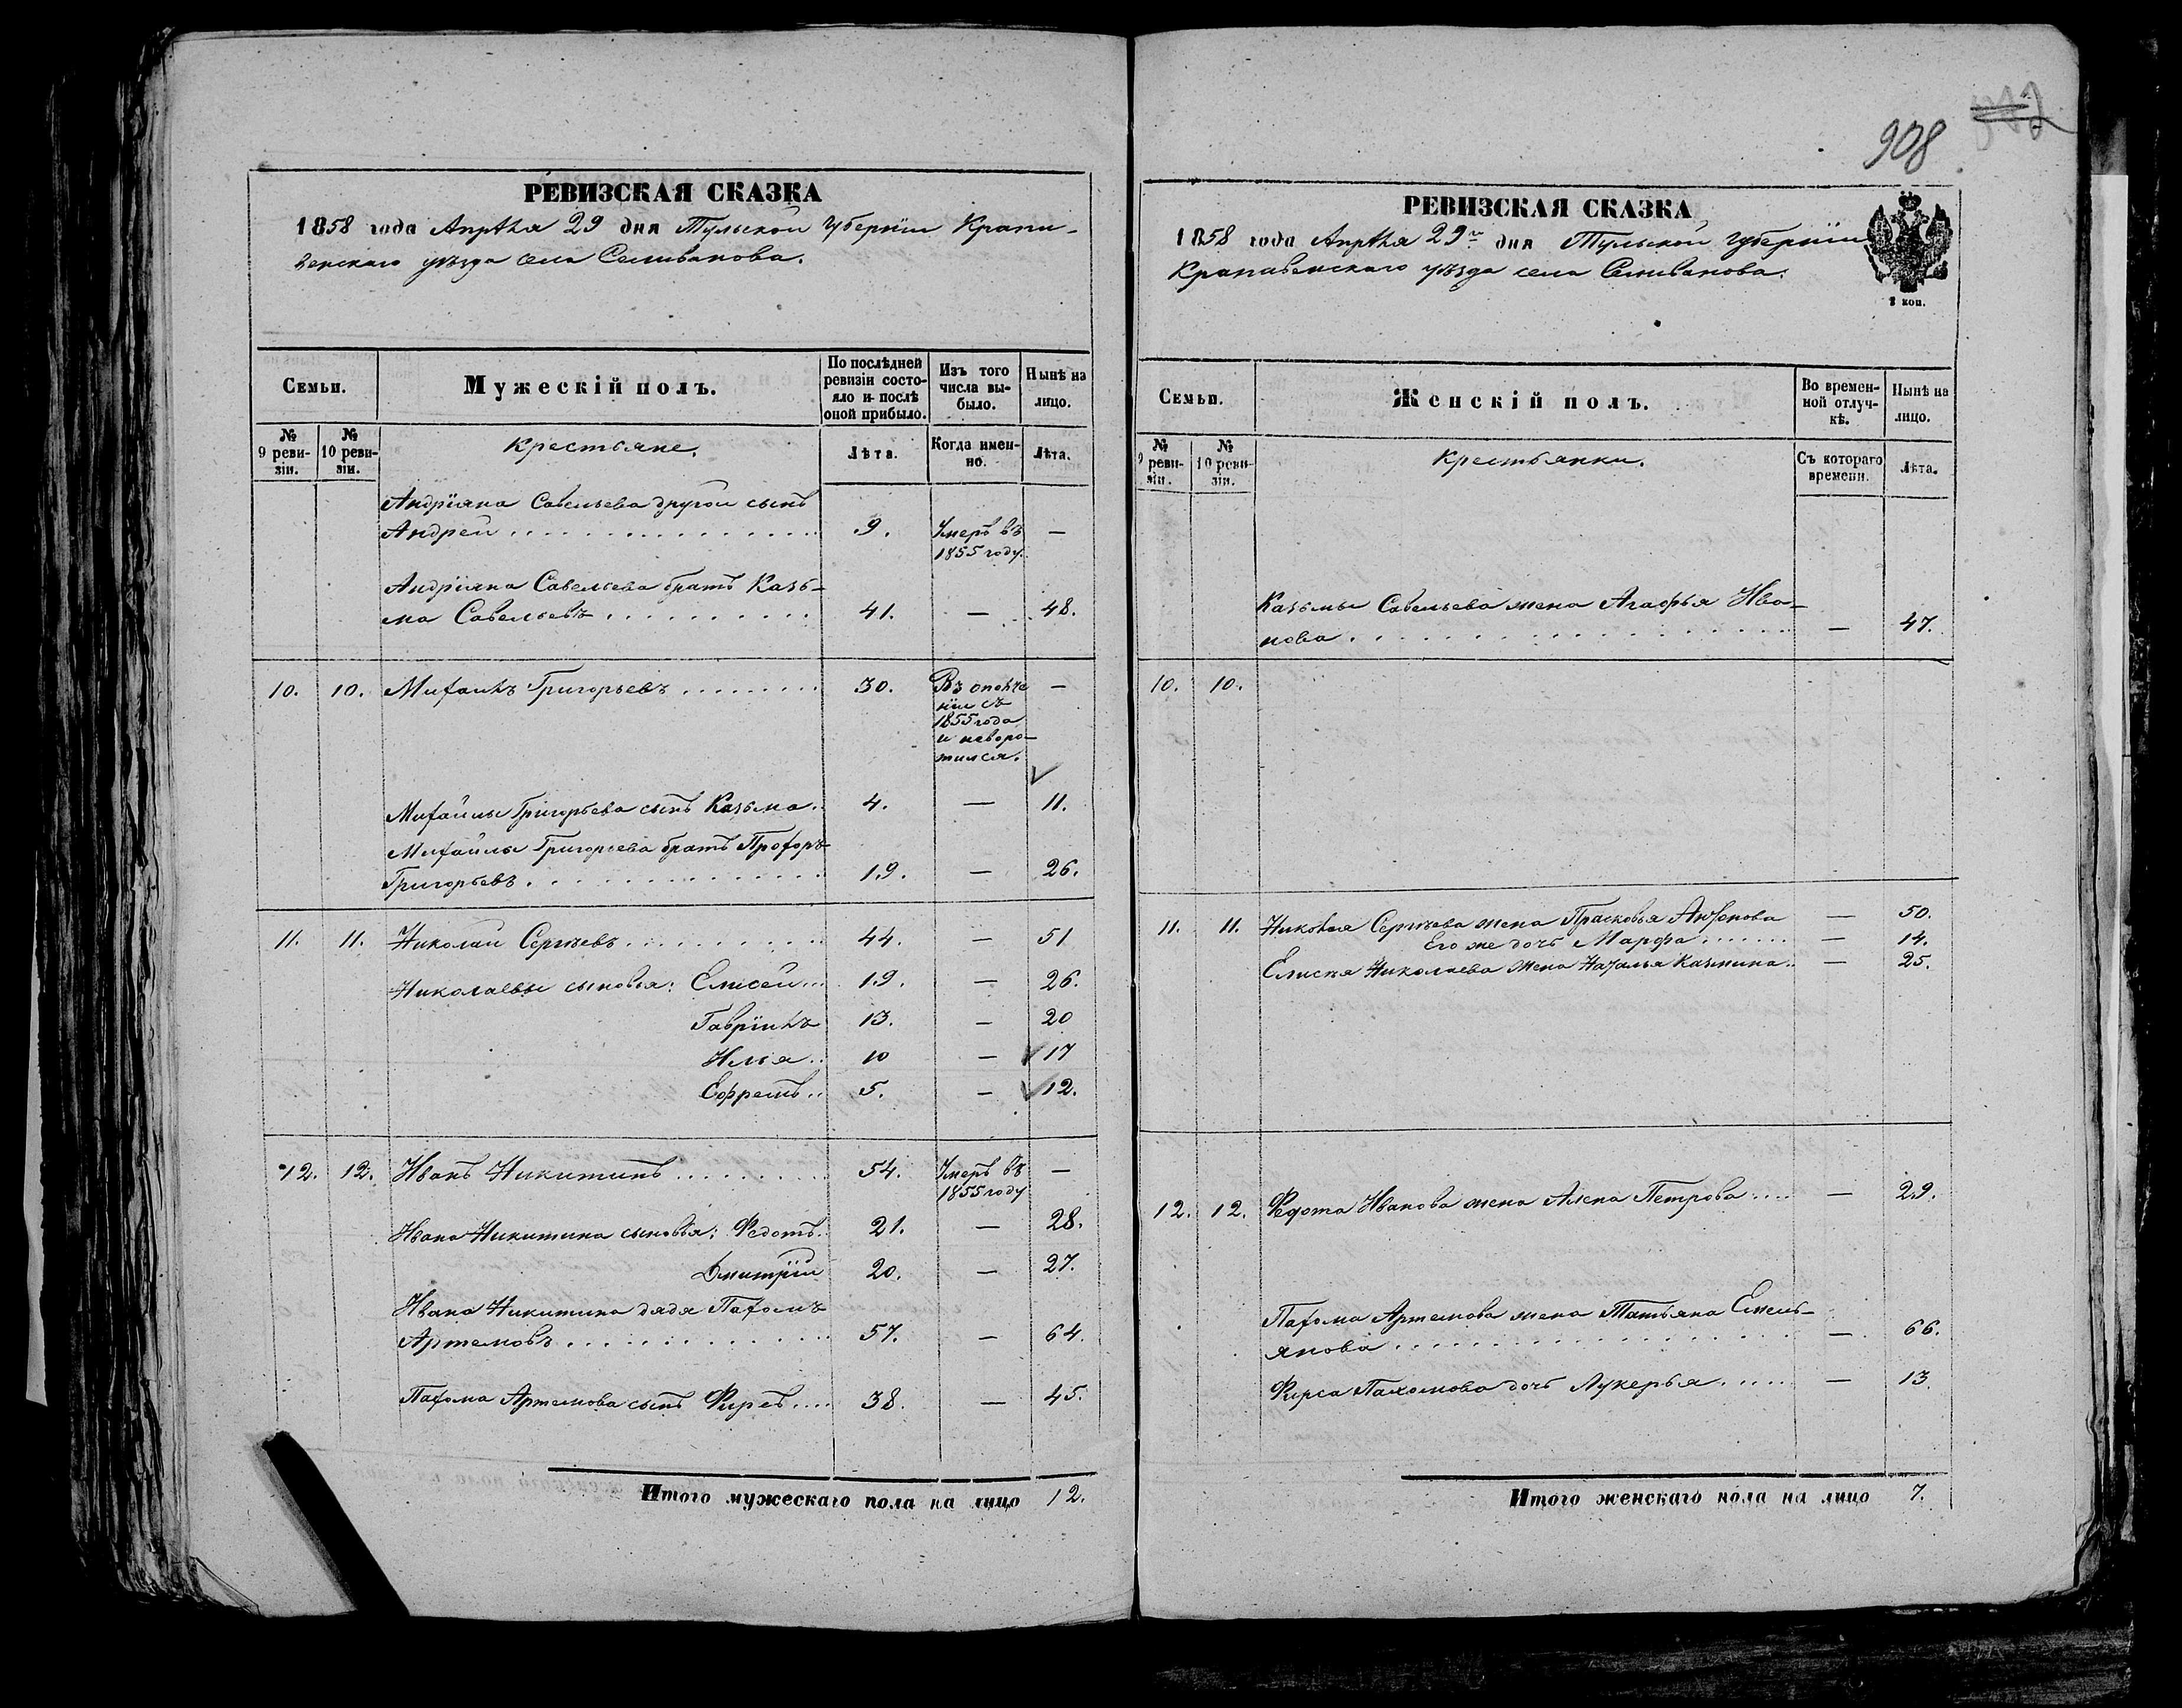 РЕВИЗСКАЯ СКАЗКА
1858 года Апрѣля 29 дня Тульской Губерніи Крапи-
венскаго уѣзда села Селиванова.
Семьи.
Мужескій полъ.
По послѣдней ревизіи состо-яло и послѣ оной прибыло.
Изъ того числа вы-было.
Нынѣ на лицо.
№ 9 реви-зіи.
№ 10 реви-зіи.
Крестьяне.
Лѣта.
Когда имен-но.
Лѣта.
Андріяна Савельева другой сынъ
Андрей 9. Умеръ въ —
1855 году.
Андріяна Савельева братъ Казь-
ма Савельевъ 41. — 48.
10. 10. Михаилъ Григорьевъ 30. Въ ополче —
ніи съ
1855 года
и неворо-
тился.
Михайлы Григорьева сынъ Казьма. 4. — 11.
Михайлы Григорьева братъ Прохоръ
Григорьевъ. 19. — 26.
11. 11. Николай Сергѣевъ 44. — 51
Николаевы сыновья: Елисей 19. — 26.
Гаврiилъ 13. — 20
Илья 10 — 17
Ефремъ 5. — 12.
12. 12. Иванъ Никитинъ 54. Умеръ въ —
1855 году
Ивана Никитина сыновья: Федотъ. 21. — 28.
Дмитрій 20. — 27.
Ивана Никитина дядя Пахомъ
Артемовъ 57. — 64.
Пахома Артемова сынъ Фирсъ 38. — 45.
Итого мужескаго пола на лицо 12.
908
РЕВИЗСКАЯ СКАЗКА
1858 года Апрѣля 29го дня Тульской Губерніи
Крапивенскаго уѣзда села Селиванова.
3 коп.
Семьи.
Женскій полъ.
Во времен-ной отлуч-кѣ.
Нынѣ на лицо.
№ 9 реви-зіи.
№ 10 реви-зіи.
Крестьянки.
Съ котораго времени.
Лѣта.
Казьмы Савельева жена Агафья Ива-
нова — 47.
10. 10.
11. 11. Николая Сергѣева жена Прасковья Анфонова — 50.
Его же дочь Марфа — 14.
Елисѣя Николаева жена Наталья Казмина — 25.
12. 12. Федота Иванова жена Алена Петрова — 29.
Пахома Артемова жена Татьяна Емель-
янова — 66.
Фирса Пахомова дочь Лукерья — 13.
Итого женскаго пола на лицо 7.